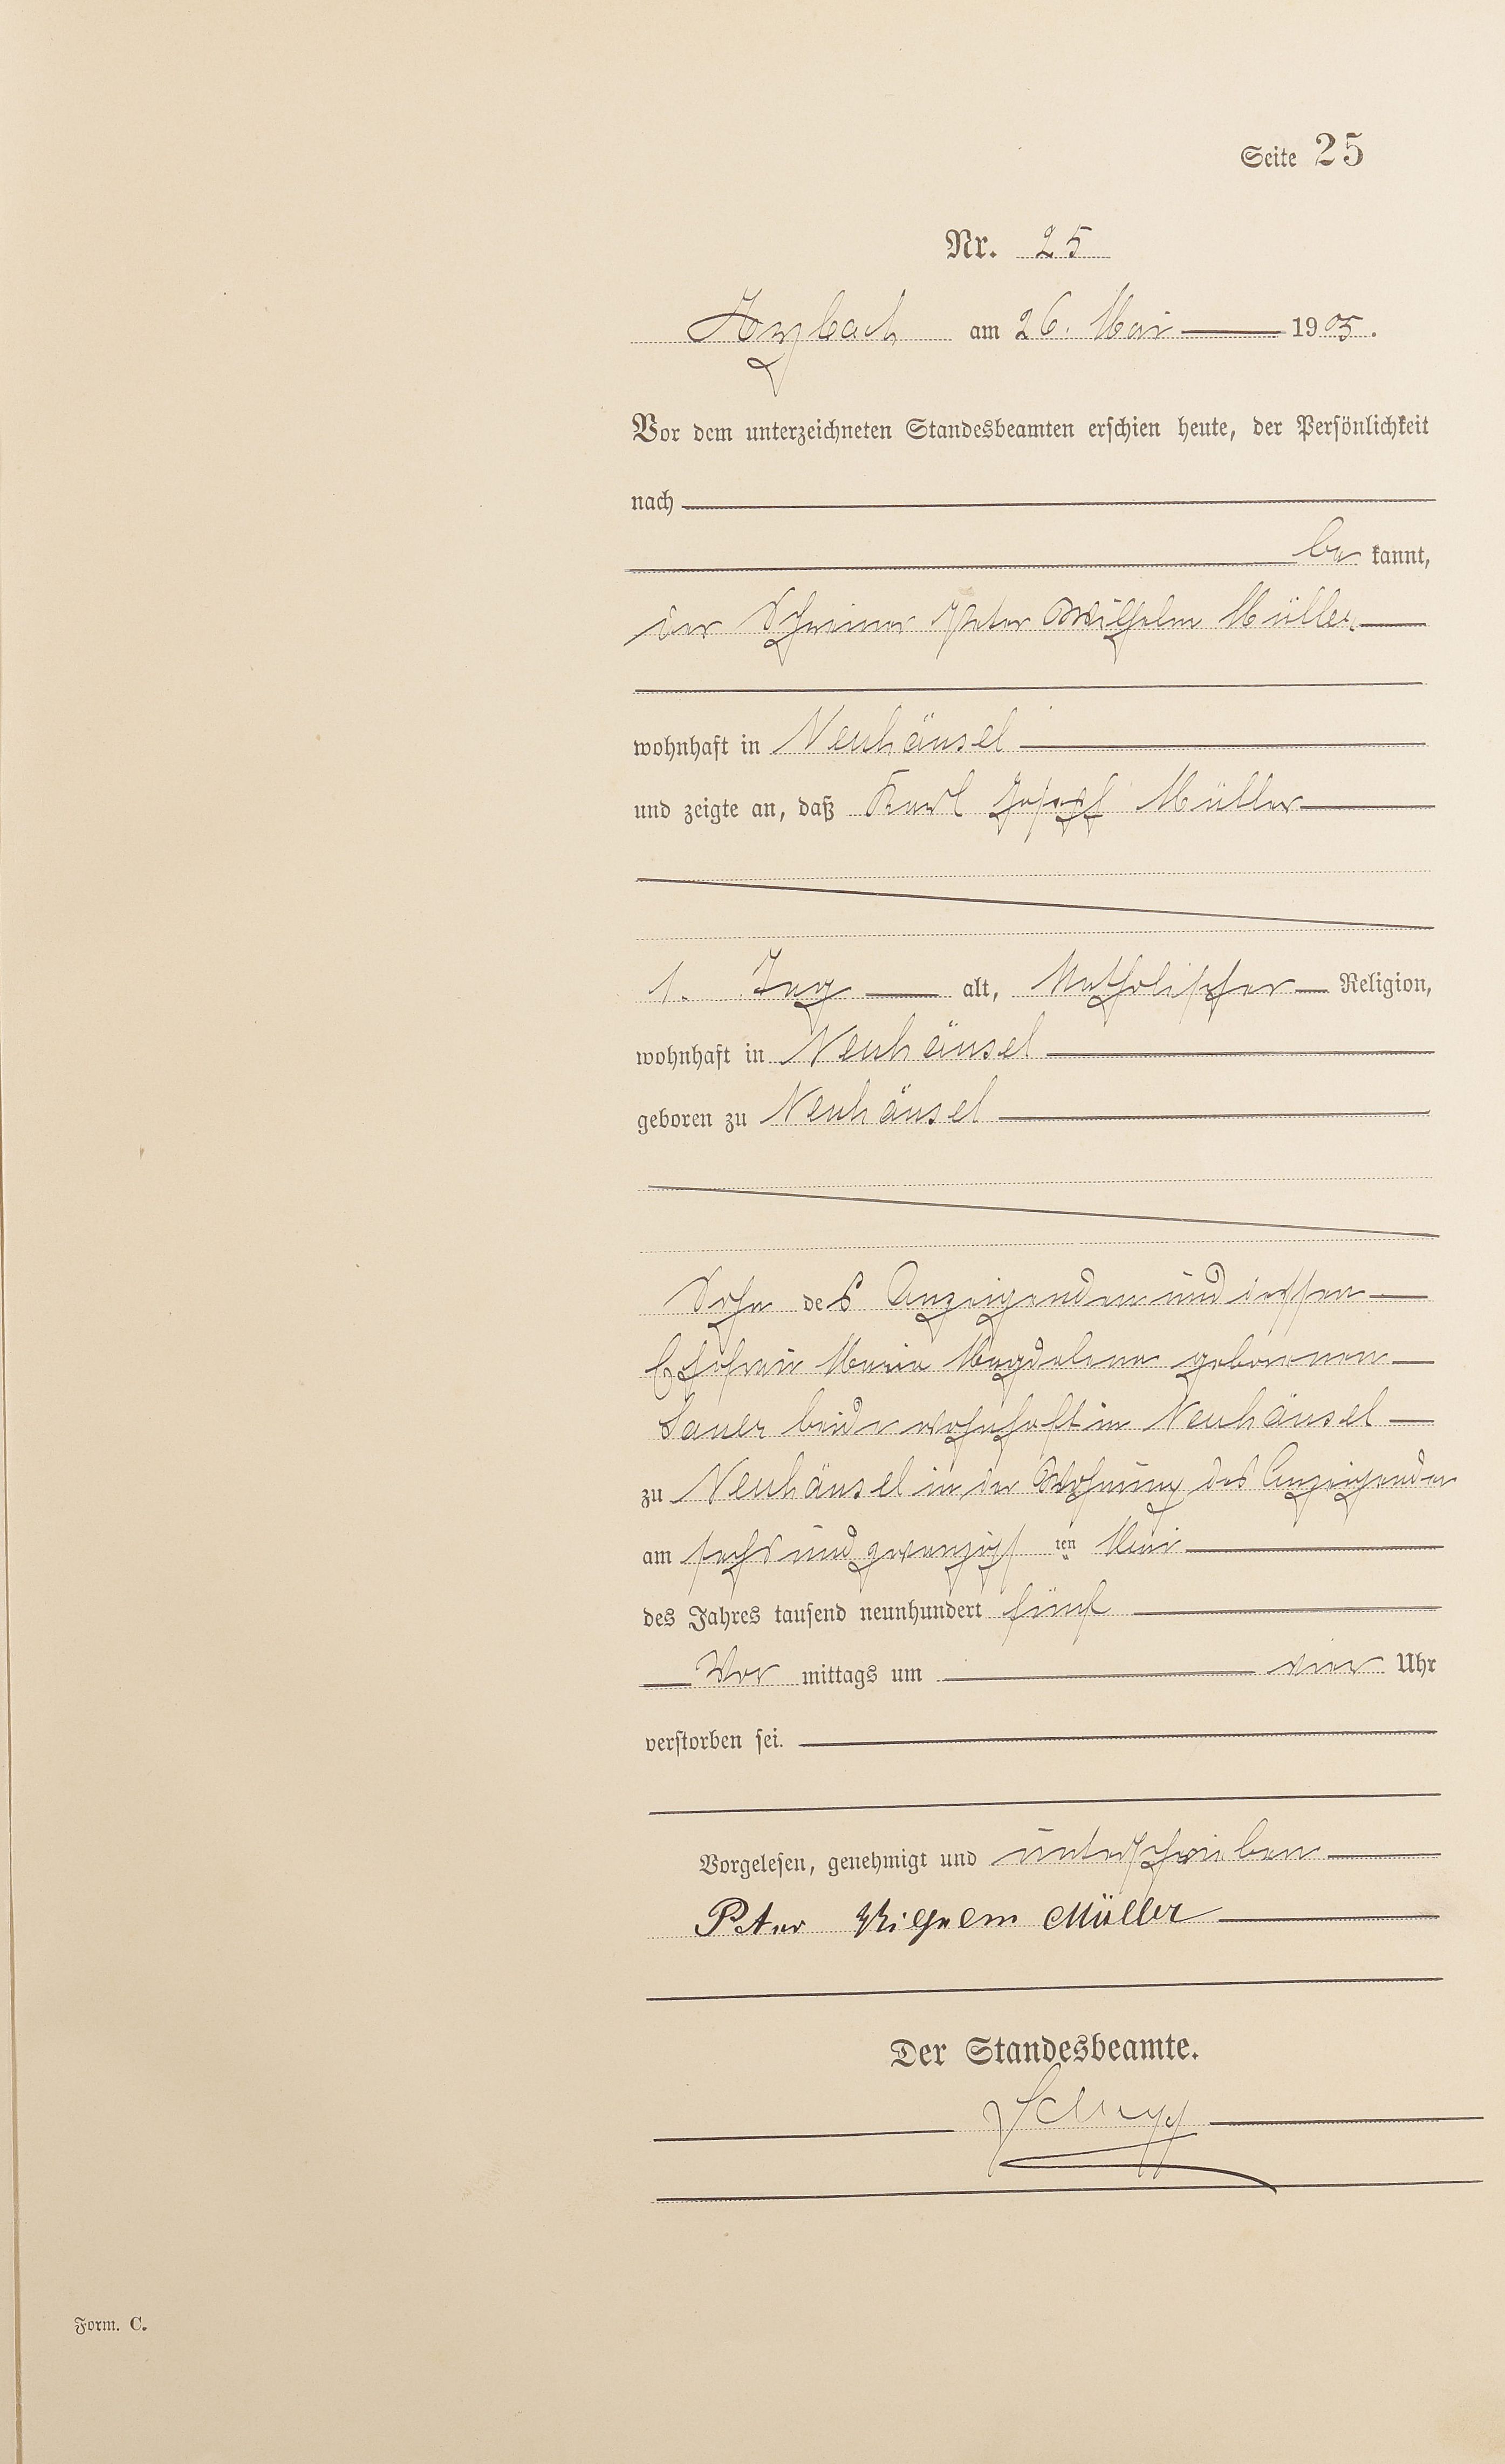 Seite 25
Nr. 25
Arzbach am 26. Mai 1905.
Vor dem unterzeichneten Standesbeamten erschien heute, der Persönlichkeit
nach
be kannt,
der Schreiner Peter Wilhelm Müller
wohnhaft in Neuhäusel
und zeigte an, daß Karl Josef Müller
1. Tag alt, Katholischer Religion,
wohnhaft in Neuhäusel
geboren zu Neuhäusel
Sohn des Anzeigenden und dessen
Ehefrau Maria Magdalena geborenen
Sauer beide wohnhaft in Neuhäusel
zu Neuhäusel in der Wohnung des Anzeigenden
am sechs und zwanzigsten Mai
des Jahres tausend neunhundert fünf
Vor mittags um vier Uhr
verstorben sei.
Vorgelesen, genehmigt und unterschrieben
Peter Wilhelm Müller
Der Standesbeamte.
Form. C.